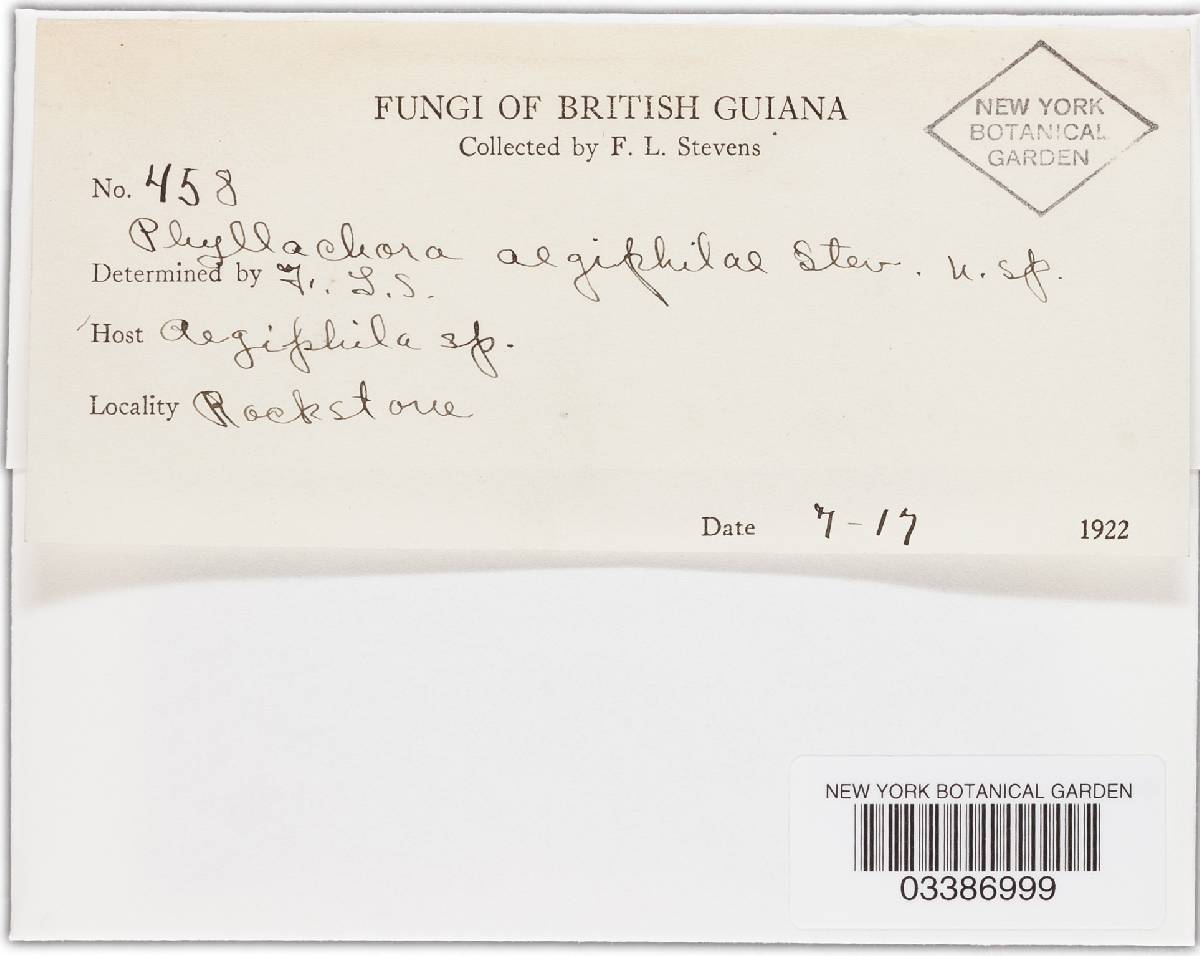 FUNGI OF BRITISH GUIANA
Collected by F. L. Stevens
NEW YORK
BOTANICAL
GARDEN
No. 458
Phyllachora aegiphilae Stev. n. sp.
Determined by F. L. S.
Host Aegiphila sp.
Locality Rockstone
Date 7-17 1922
NEW YORK BOTANICAL GARDEN
03386999